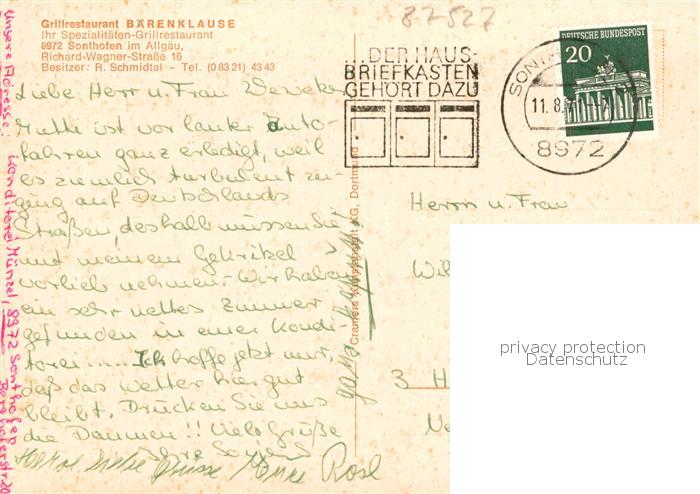 87527
Grillrestaurant BÄRENKLAUSE
Ihr Spezialitäten-Grillrestaurant
8972 Sonthofen im Allgäu,
Richard-Wagner-Straße 16
Besitzer: R. Schmidtal - Tel. (0 83 21) 43 43
DER HAUS-
BRIEFKASTEN
GEHÖRT DAZU
DEUTSCHE BUNDESPOST
20
SONTH
11.8.7
8972
Liebe Herr u. Frau
Mutti ist vor lauter Auto-
fahren ganz erledigt, weil
es ziemlich turbulent zu-
ging auf Deutschlands
Straßen, deshalb müssen Sie
mit meinem Gekritzel
vorlieb nehmen. Wir haben
ein sehr nettes Zimmer
gefunden in einer Kondi-
torei..... Ich hoffe jetzt nur,
daß das Wetter hier gut
bleibt. Drücken Sie uns
die Daumen!! Viele Grüße
Ihre
liebe Grüsse Rosl
Unsere Adresse: Konditorei Münzel, 8972 Sonthofen
20
Cramers Kunstanstalt KG, Dortmund
Herrn u. Frau
Wil
3 H
privacy protection
Datenschutz